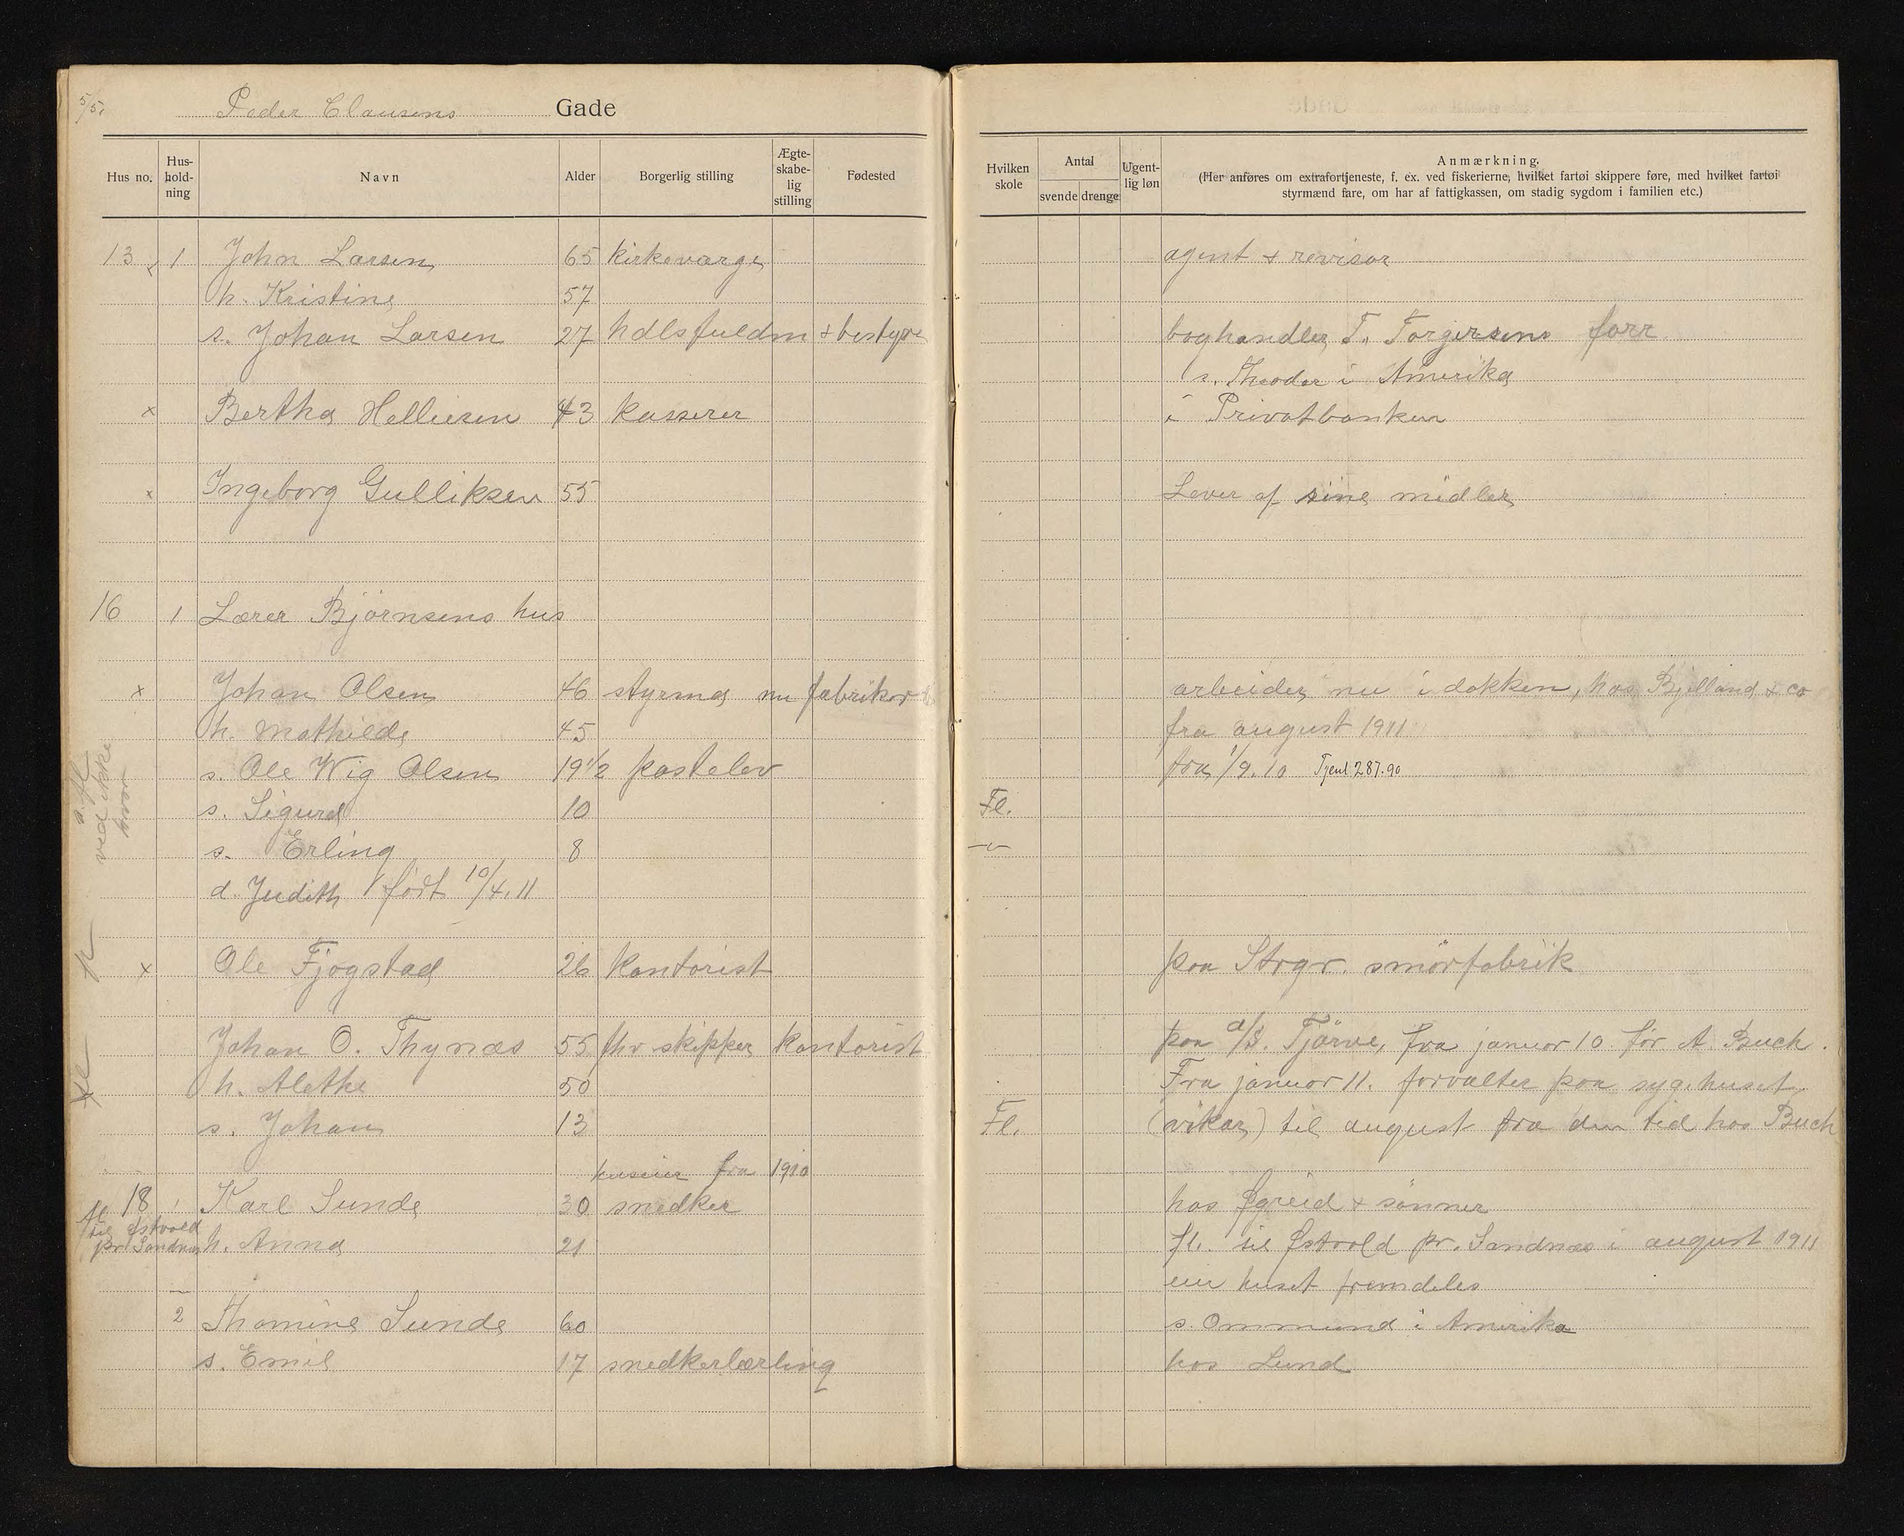 5/5.
Peder Clausens Gade
Hus no. Hus-hold-ning Navn Alder Borgerlig stilling Ægte-skabe-lig stilling Fødested
Hvilken skole Antal svende drenge Ugent-lig løn Anmærkning.
(Her anføres om extrafortjeneste, f. ex. ved fiskerierne, hvilket fartøi skippere føre, med hvilket fartøi
styrmænd fare, om har af fattigkassen, om stadig sygdom i familien etc.)
13 1 John Larsen 65 kirkeværge agent + revisor
h. Kristine 57
s. Johan Larsen 27 hdlsfuldm + bestyre boghandler T. Torgersens forr
s. Theodor i Amerika
x Bertha Helliesen 43 kasserer i Privatbanken
x Ingeborg Gulliksen 55 Lever af sine midler
16 1 Lærer Bjørnsens hus
x Johan Olsen 46 styrmd nu fabrikar arbeider nu i dokken, hos Bjelland & co
h. Mathilde 45 fra august 1911
s. Ole Wig Olsen 19 1/2 postelev fra 1/9.10 Tjent 287.90
s. Sigurd 10 Fl.
s. Erling 8 -"-
d. Judith født 10/4.11
ved ikke
hvor
x Ole Fjogstad 26 kontorist paa Stvgr. smørfabrik
Johan O. Thynæs 55 fhv skipper kontorist paa a/s. Tjørve, fra januar 10. før A. Buch.
h. Alethe 50 Fra januar 11. forvalter paa sygehuset
s. Johan 13 Fl. (vikar) til august fra den tid hos Buch
huseier fra 1910
18 1 Karl Sunde 30 snedker hos Øgreid + sønner
fl. til Østvold pr. Sandnæs
h. Anna 21 fl. til Østvold pr. Sandnæs i august 1911
eier huset fremdeles
2 Thomine Sunde 60 s. Ommund i Amerika
s. Emil 17 snedkerlærling hos Lund